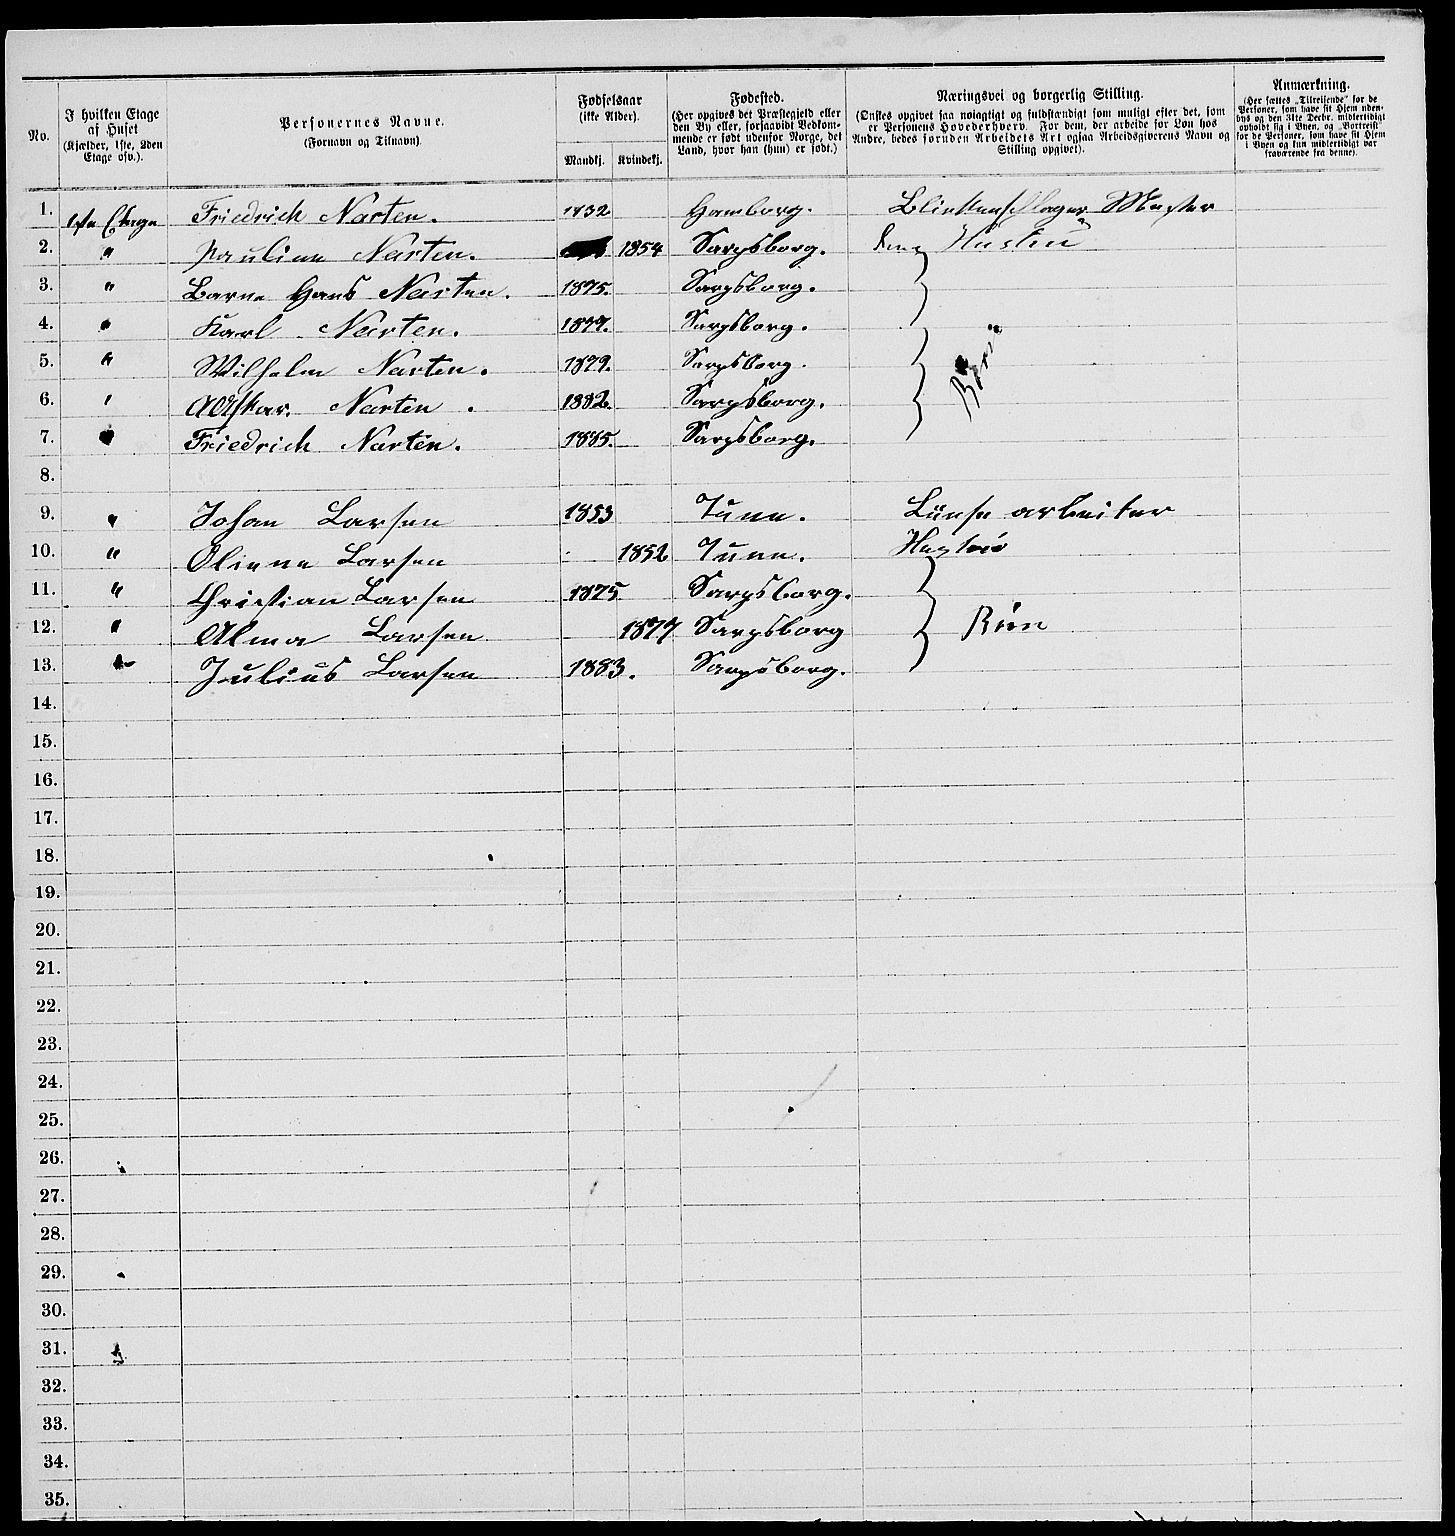 No. | I hvilken Etage af Huset (Kjælder, 1ste, 2den Etage osv.). | Personernes Navne. (Fornavn og Tilnavn). | Fødselsaar (ikke Alder). Mandkj. | Kvindekj. | Fødested. (Her opgives det Præstegjeld eller den By eller, forsaavidt Vedkommende er født udenfor Norge, det Land, hvor han (hun) er født.) | Næringsvei og borgerlig Stilling. (Ønskes opgivet saa nøiagtigt og fuldstændigt som muligt efter det, som er Personens Hovederhverv. For dem, der arbeide for Løn hos Andre, bedes foruden Arbeidets Art ogsaa Arbeidsgiverens Navn og Stilling opgivet). | Anmærkning. (Her sættes „Tilreisende“ for de Personer, som have sit Hjem udenbys og den 31te Decbr. midlertidigt opholdt sig i Byen, og „Bortreist“ for de Personer, som have sit Hjem i Byen og kun midlertidigt var fraværende fra denne).
1. 1ste Etage Friedrich Narten. 1832 Hamborg. Blickenschlager Mester
2. " Pauline Narten. 1854 Sarpsborg. Hustru
3. " Barne Hans Narten. 1875. Sarpsborg.
4. " Karl Narten. 1877. Sarpsborg.
5. " Wilhelm Narten. 1879. Sarpsborg. Börn
6. " Narten. 1882. Sarpsborg.
7. " Friedrich Narten. 1885. Sarpsborg.
8.
9. " Johan Larsen 1853 Tune. arbeiter
10. " Oliene Larsen 1852 Tune.
11. " Christian Larsen 1875 Sarpsborg.
12. " Alma Larsen 1877 Sarpsborg Börn
13. " Julius Larsen 1883. Sarpsborg.
14.
15.
16.
17.
18.
19.
20.
21.
22.
23.
24.
25.
26.
27.
28.
29.
30.
31.
32.
33.
34.
35.